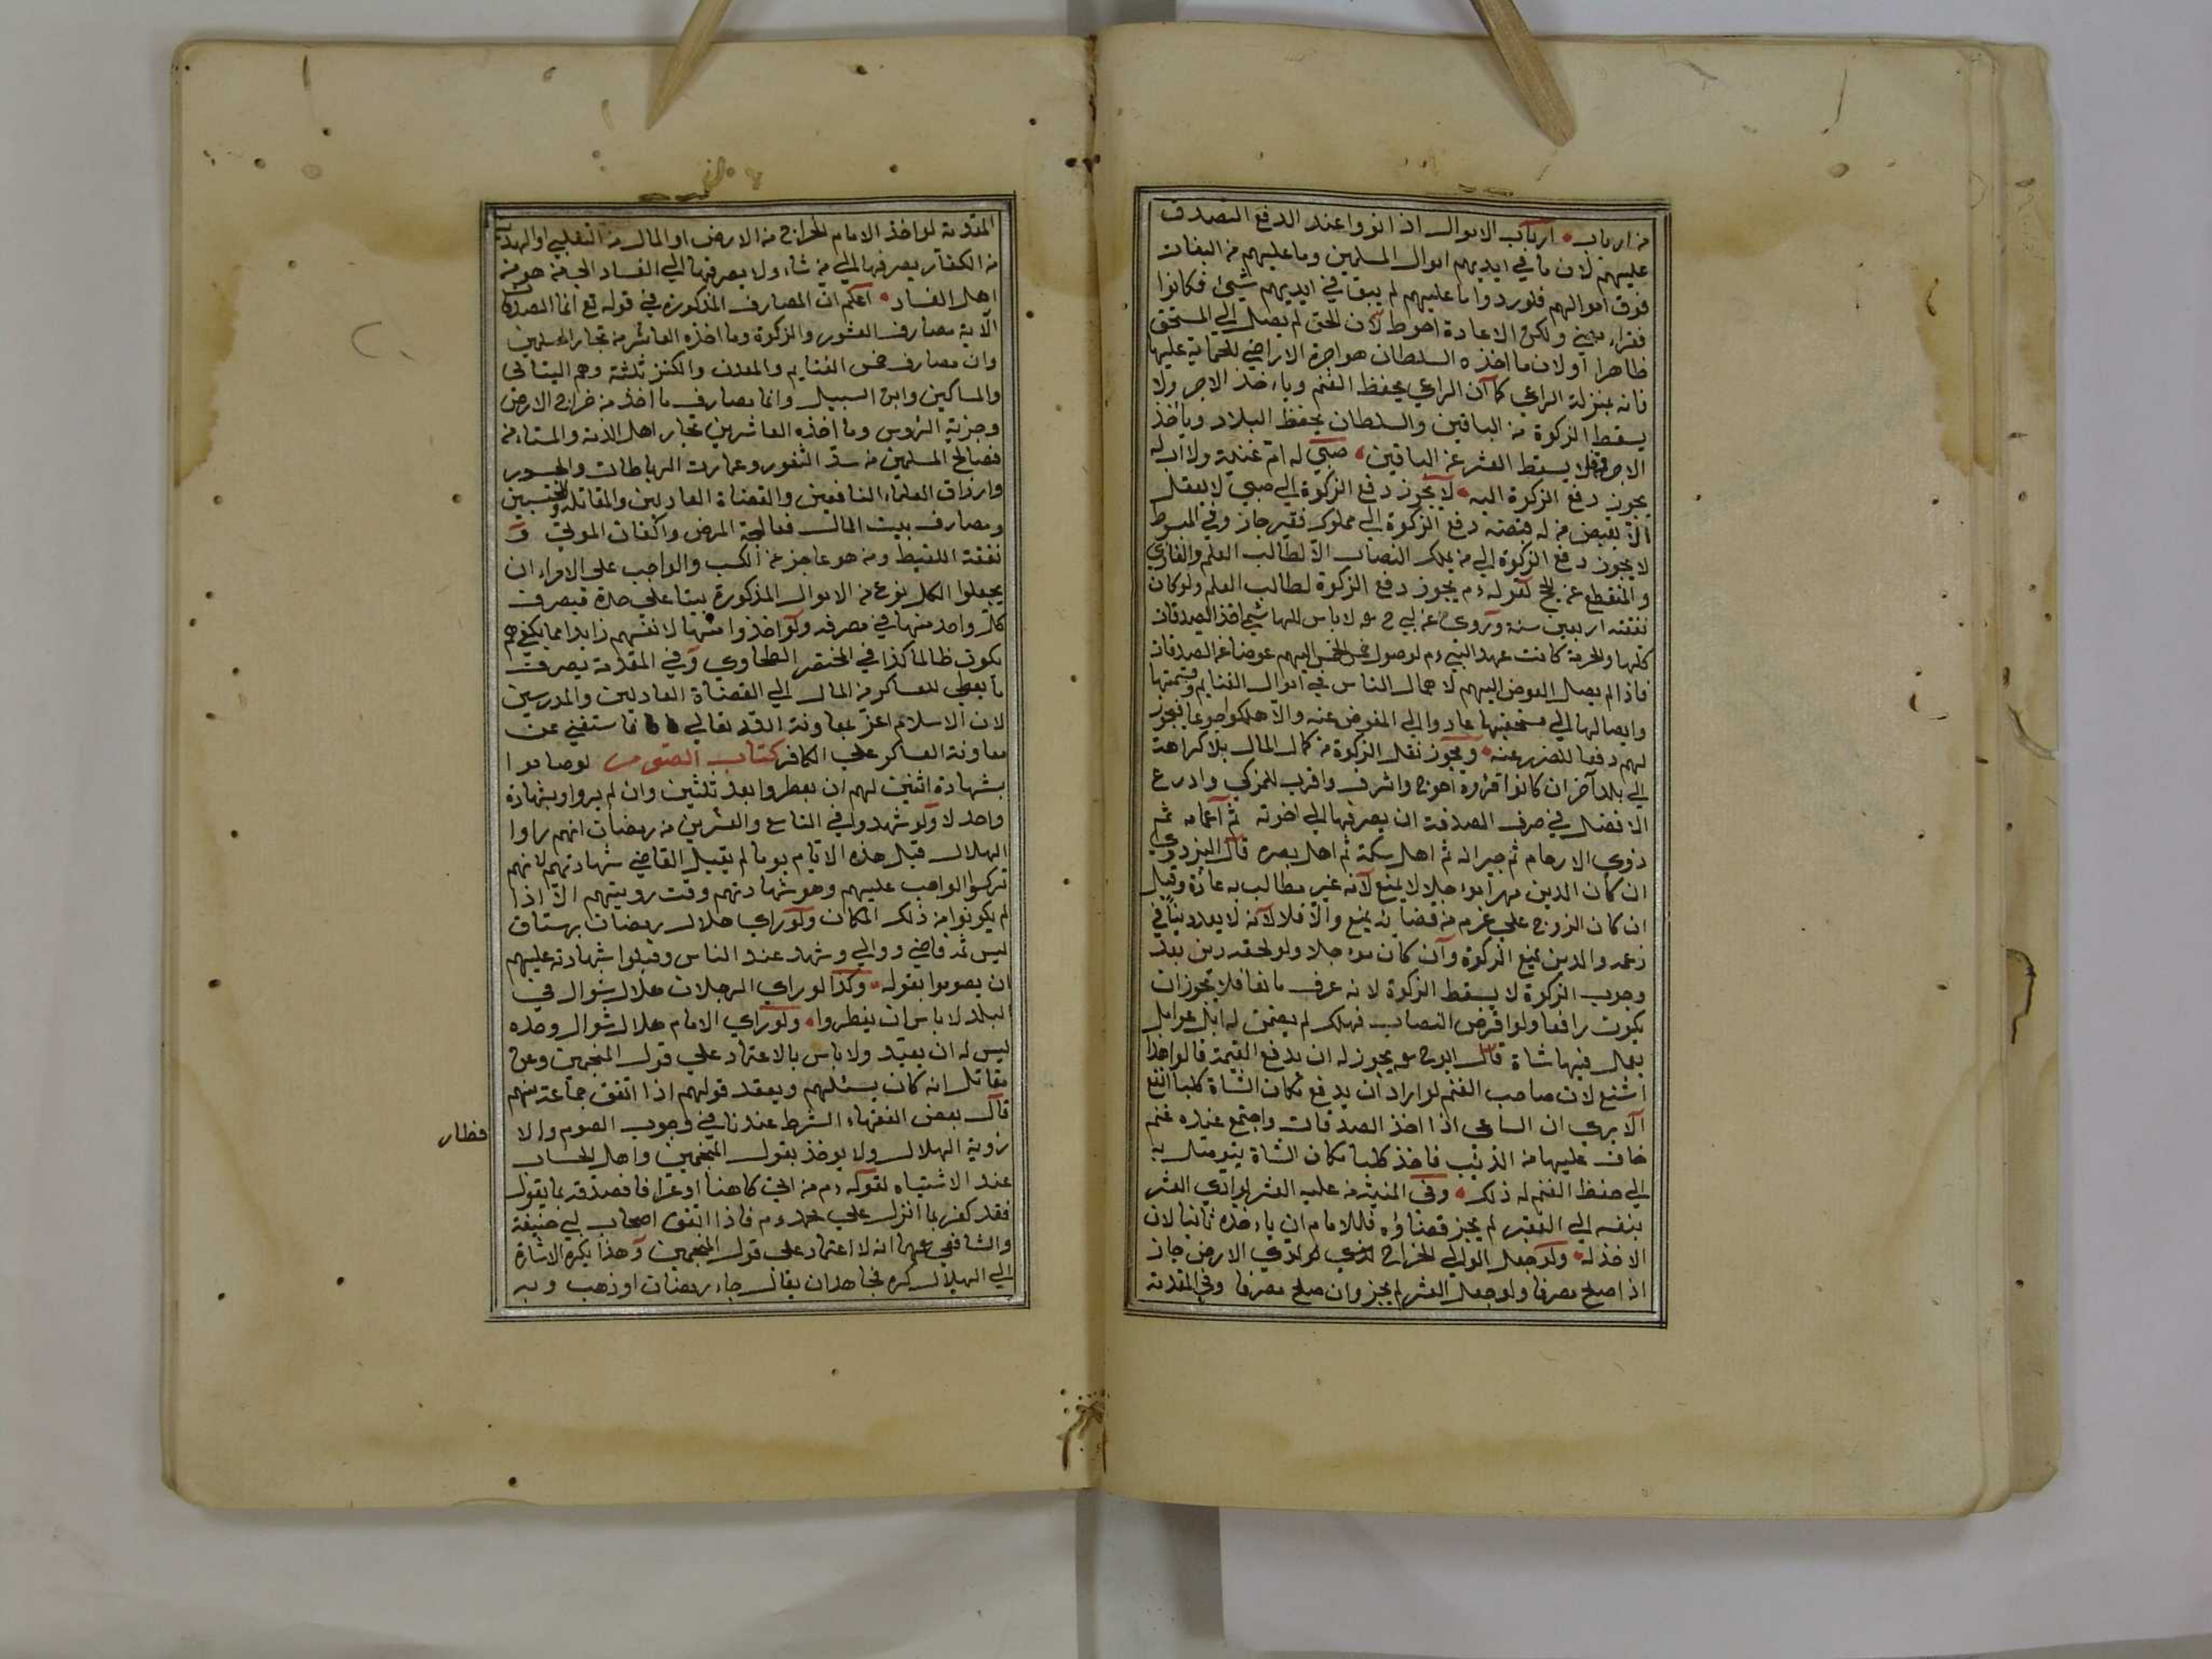 من ارباب ارباب الاموال اذا نووا عند الدفع التصدق
عليهم لان ما في ايديهم اموال المسلمين وما عليهم من التبعات
فوق اموالهم فلو ردوا ما عليهم لم يبق في ايديهم شيئ فكانوا
فقراء ولكن الاعادة احوط لان الحق لم يصل الي المستحق
ظاهرا او لان ما اخذه السلطان هو اجرة الاراضي للحماية عليها
فانه بمنزلة الراعي كما ان الراعي يحفظ الغنم ويأخذ الاجر ولا
يسقط الزكوة من الباقين والسلطان يحفظ البلاد ويأخذ
الاجر فلا يسقط العشر عن الباقين صبي له ام غنية ولا اب له
يجوز دفع الزكوة اليه لا يجوز دفع الزكوة الي صبي لا يعقل
الا بقبض من له قبضه دفع الزكوة الي مملوك فقير جاز وفي المبسوط
لا يجوز دفع الزكوة الي من يملك النصاب الا لطالب العلم والغازي
والمنقطع عن الحج لقوله ءم يجوز دفع الزكوة لطالب العلم ولو كان
نفقته اربعين سنة وروي عن ابي ح لا باس للهاشمي اخذ الصدقات
كلها والحرمة كانت عهد النبي ءم لوصول خمس الخمس اليهم عوضا عن الصدقات
فاذا لم يصل العوض اليهم لاهمال الناس في اموال الغنايم وقسمتها
وايصالها الي مستحقيها عادوا الي المعوض عنه والا هلكوا جوعا فيجوز
لهم دفعا للضرر عنه ويجوز نقل الزكوة من كمال المال بلا كراهة
الي بلد آخر ان كانوا اقرباؤه احوج واشرف واقرب للمزكي وادرع
الافضل في صرف الصدقة ان يصرفها الي اخوته ثم اعمامه ثم
ذوي الارحام ثم جيرانه ثم اهل سكته ثم اهل مصره قال البزدوي
ان كان الدين مهرا مؤجلا لا يمنع لانه غير مطالب به عادة وقيل
ان كان الزوج علي عزم من قضائه يمنع والا فلا لانه لا يعد دينا في
زعمه والدين يمنع الزكوة وان كان مؤجلا ولو لحقه دين بعد
وجوب الزكوة لا يسقط الزكوة لانه عرف مانعا فلا يجوز ان
يكون رافعا ولو اقرض النصاب فهلك لم يضمن له ابل عوامل
يعمل فيها شاة قال ابو ح يجوز له ان يدفع القيمة قالوا هذا
اشنع لان صاحب الغنم لو اراد ان يدفع مكان الشاة كلبا انفع
الا يري ان الساعي اذا اخذ الصدقات واجتمع عنده غنم
خاف عليها من الذئب فاخذ كلبا مكان الشاة يتوصل به
الي حفظ الغنم له ذلك وفي المنية من عليه العشر لو ادي العشر
بنفسه الي الفقير لم يجز قضاؤه فللامام ان يأخذه ثانيا لان
الاخذ له ولو جعل الوالي الخراج لذي الارض جاز
اذا صلح مصرفا ولو جعل العشر لم يجز وان صلح مصرفا وفي المقدمة
المقدمة لو اخذ الامام الخراج من الارض او المال من التغلبي او الهدية
من الكفار يصرفها الي من شاء ولا يصرفها الي الفساد الي من هو من
اهل الفساد اعلم ان المصارف المذكورة في قوله تع انما الصدقات
الآية مصارف العشور والزكوة وما اخذه العاشر من تجار المسلمين
وان مصارف خمس الغنايم والمعدن والكنز ثلثة وهم اليتامى
والمساكين وابن السبيل وانما مصارف ما اخذ من خراج الارض
وجزية الرؤس وما اخذه العاشر من تجار اهل الذمة والمستامنه
فصالح المسلمين من سد الثغور وعمارت الرباطات والجسور
وارزاق العلماء النافعين والقضاة العادلين والمقاتلة والمحتسبين
ومصارف بيت المال فعالجة المرض واكفان الموتي و
نفقة اللقيط ومن هو عاجز عن الكسب والواجب علي الامراء ان
يجعلوا لكل نوع من الاموال المذكورة بيتا علي حدة فيصرف
كل واحد منها في مصرفه ولو اخذوا منها لانفسهم زايدا مما يكفيهم
يكون ظالما كذا في المختصر الطحاوي وفي المقدمة يصرف
ما يعطي للعساكر من المال الي القضاة العادلين والمدرسين
لان الاسلام اعز بمعاونة الله تعالي فاستغني عن
معاونة العساكر علي الكافر كتاب الصوم لو صاموا
بشهادة اثنين لهم ان يفطروا بعد ثلثين وان لم يروا وبشهادة
واحد لا ولو شهدوا في التاسع والعشرين من رمضان انهم راوا
الهلال قبل هذه الايام يوما لم يقبل القاضي شهادتهم لانهم
تركوا الواجب عليهم وهو شهادتهم وقت رويتهم الا اذا
لم يكونوا من ذلك المكان ولو راي هلال رمضان برستاق
ليس ثمه قاضي ووالي وشهد عند الناس وقبلوا شهادته عليهم
ان يصوموا بقوله وكذا لو راي الرجلان هلال شوال في
البلد لا باس ان يفطروا ولو راي الامام هلال شوال وحده
ليس له ان يعيد ولا باس بالاعتماد علي قول المنجمين وعن
مقاتل انه كان يسئلهم ويعتمد قولهم اذا اتفق جماعة منهم
قال بعض الفقهاء الشرط عندنا في وجوب الصوم والا
فطار
رؤية الهلال ولا يوخذ بقول المنجمين واهل الحساب
عند الاشتباه لقوله ءم من اتي كاهنا او عرافا فصدقه بما يقول
فقد كفر بما انزل علي محمد ءم فاذا اتفق اصحاب ابي حنيفة
والشافعي انه لا اعتماد علي قول المنجمين وهذا يكره الاشارة
الي الهلال كره مجاهد ان يقال جاء رمضان او ذهب وبه